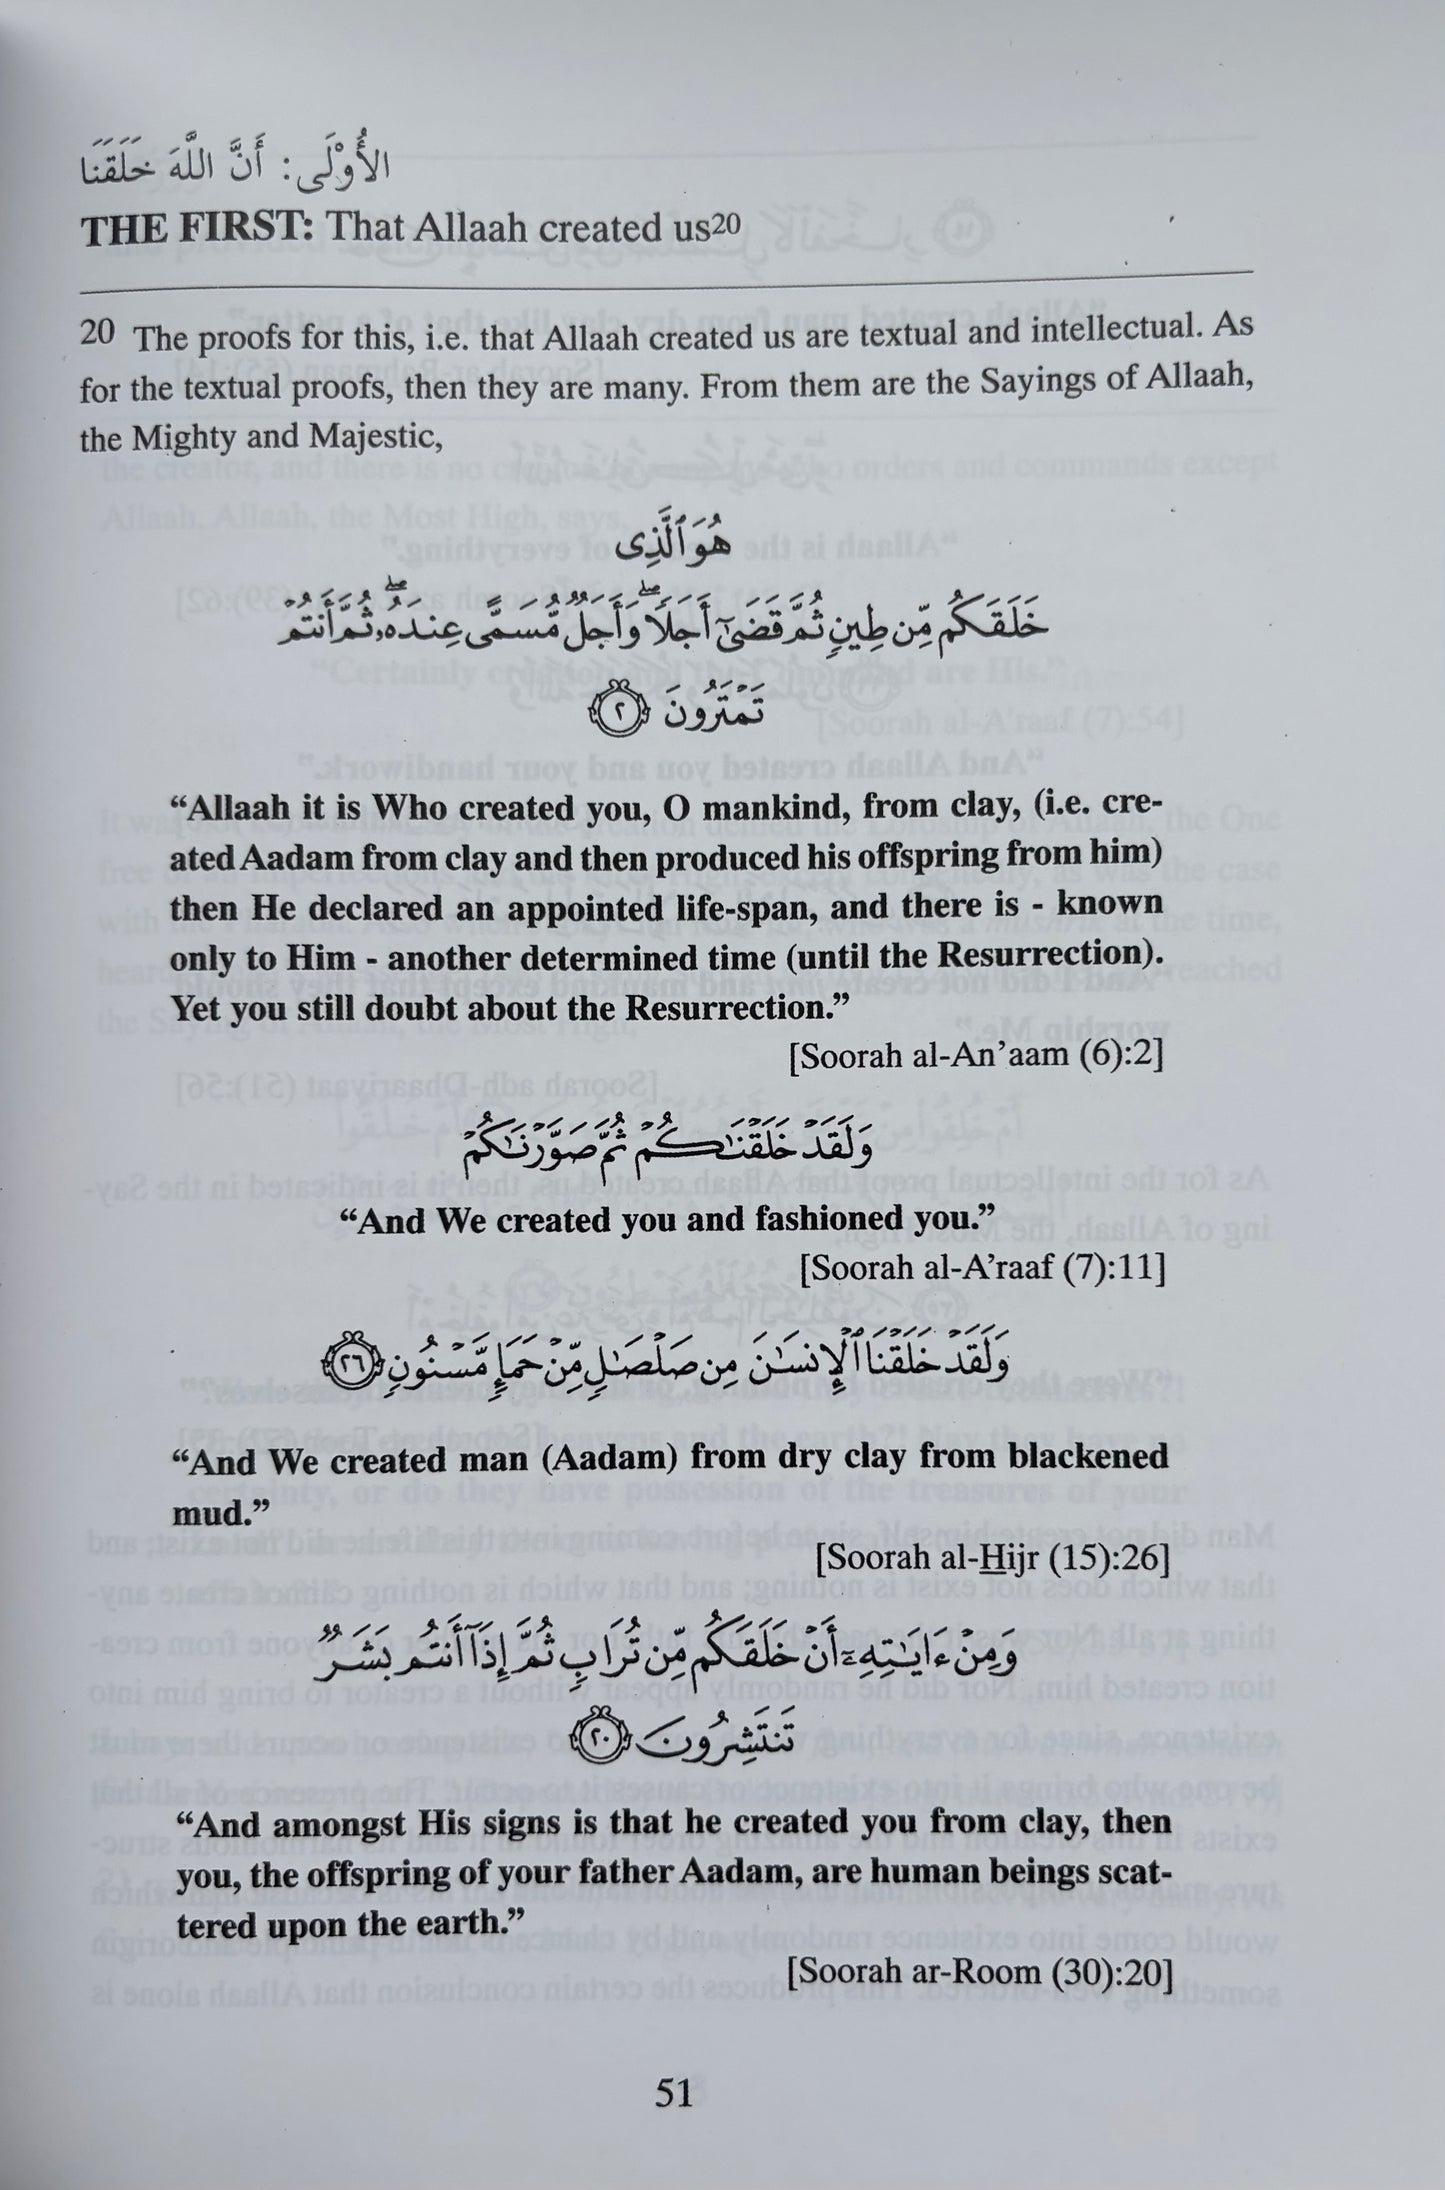 الأُوْلَى: أَنَّ اللَّهَ خَلَقَنَا
THE FIRST: That Allaah created us20
20 The proofs for this, i.e. that Allaah created us are textual and intellectual. As
for the textual proofs, then they are many. From them are the Sayings of Allaah,
the Mighty and Majestic,
هُوَ ٱلَّذِى
خَلَقَكُم مِّن طِينٍ ثُمَّ قَضَىٰٓ أَجَلًا ۖ وَأَجَلٌ مُّسَمًّى عِندَهُۥ ۖ ثُمَّ أَنتُمْ
تَمْتَرُونَ ٢
“Allaah it is Who created you, O mankind, from clay, (i.e. cre-
ated Aadam from clay and then produced his offspring from him)
then He declared an appointed life-span, and there is - known
only to Him - another determined time (until the Resurrection).
Yet you still doubt about the Resurrection.”
[Soorah al-An’aam (6):2]
وَلَقَدْ خَلَقْنَٰكُمْ ثُمَّ صَوَّرْنَٰكُمْ
“And We created you and fashioned you.”
[Soorah al-A’raaf (7):11]
وَلَقَدْ خَلَقْنَا ٱلْإِنسَٰنَ مِن صَلْصَٰلٍ مِّنْ حَمَإٍ مَّسْنُونٍ ٢٦
“And We created man (Aadam) from dry clay from blackened
mud.”
[Soorah al-Hijr (15):26]
وَمِنْ ءَايَٰتِهِۦٓ أَنْ خَلَقَكُم مِّن تُرَابٍ ثُمَّ إِذَآ أَنتُم بَشَرٌ
تَنتَشِرُونَ ٢٠
“And amongst His signs is that he created you from clay, then
you, the offspring of your father Aadam, are human beings scat-
tered upon the earth.”
[Soorah ar-Room (30):20]
51